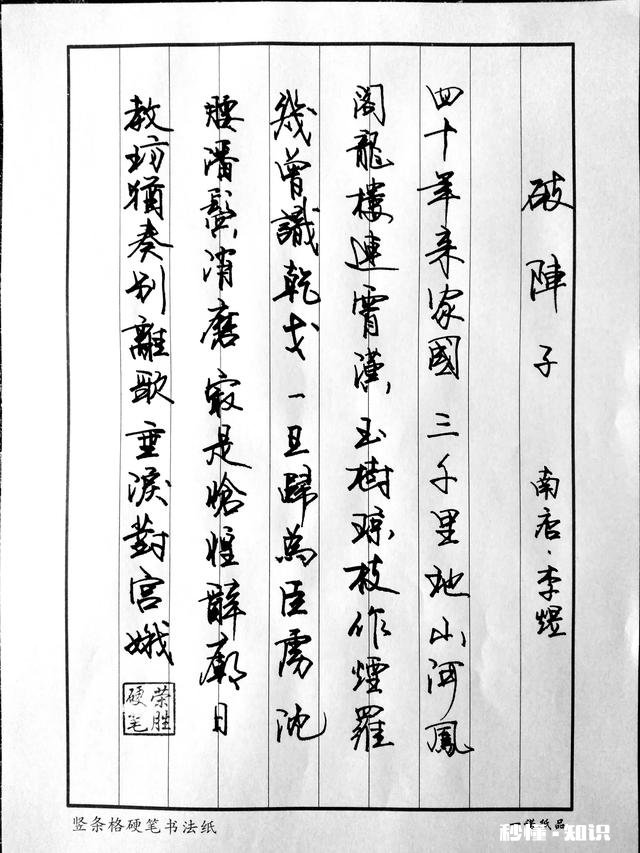 破陣子 南唐·李煜
四十年来家國 三千里地山河 鳳
閣龍樓連霄漢 玉樹瓊枝作煙羅
幾曾識乾戈 一旦歸為臣虜 沈
腰潘鬢消磨 寂是愴惶辭廟日
教坊猶奏別離歌 垂淚對宮娥
荣胜
硬笔
竖条格硬笔书法纸
一诺纸品
秒懂·知识